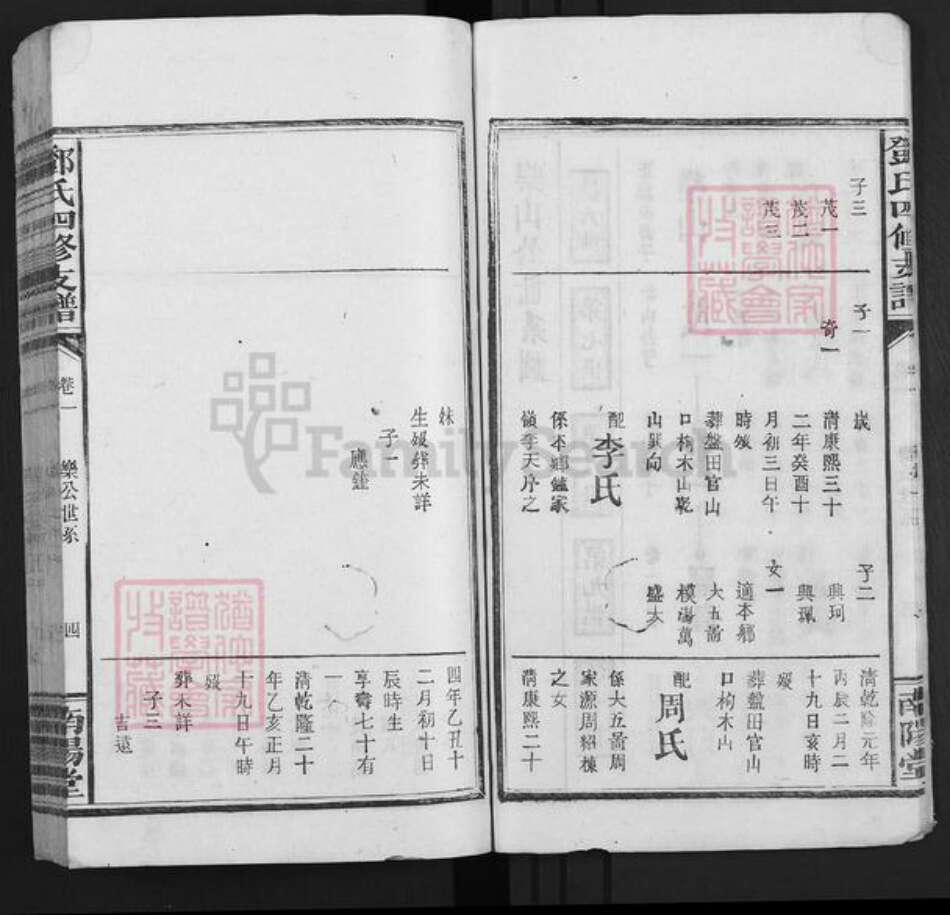 鄧氏四修支譜
南陽堂
子三
茂一
茂二
茂三
子一
奇一
歲
清康熙三十
二年癸酉十
月初三日午
時歿
葬盤田官山
口枸木山乾
山巽向
配
李氏
係本鄉鑪家
嶺李天序之
子二
興珂
興珮
女一
適本鄉
大五嵛
模塲萬
盛大
清乾隆元年
丙辰二月二
十九日亥時
歿
葬盤田官山
口枸木山
配
周氏
係大五嵛周
家源周紹棟
之女
清康熙二十
妹
生歿葬未詳
子一
應鍾
四年乙丑十
二月初十日
辰時生
享壽七十有
一
清乾隆二十
年乙亥正月
十九日午時
歿
葬未詳
子三
吉遠
鄧氏四修支譜
卷一
樂公世系
四
南陽堂
猶他家
譜學會
收藏
猶他家
譜學會
收藏
FamilySearch